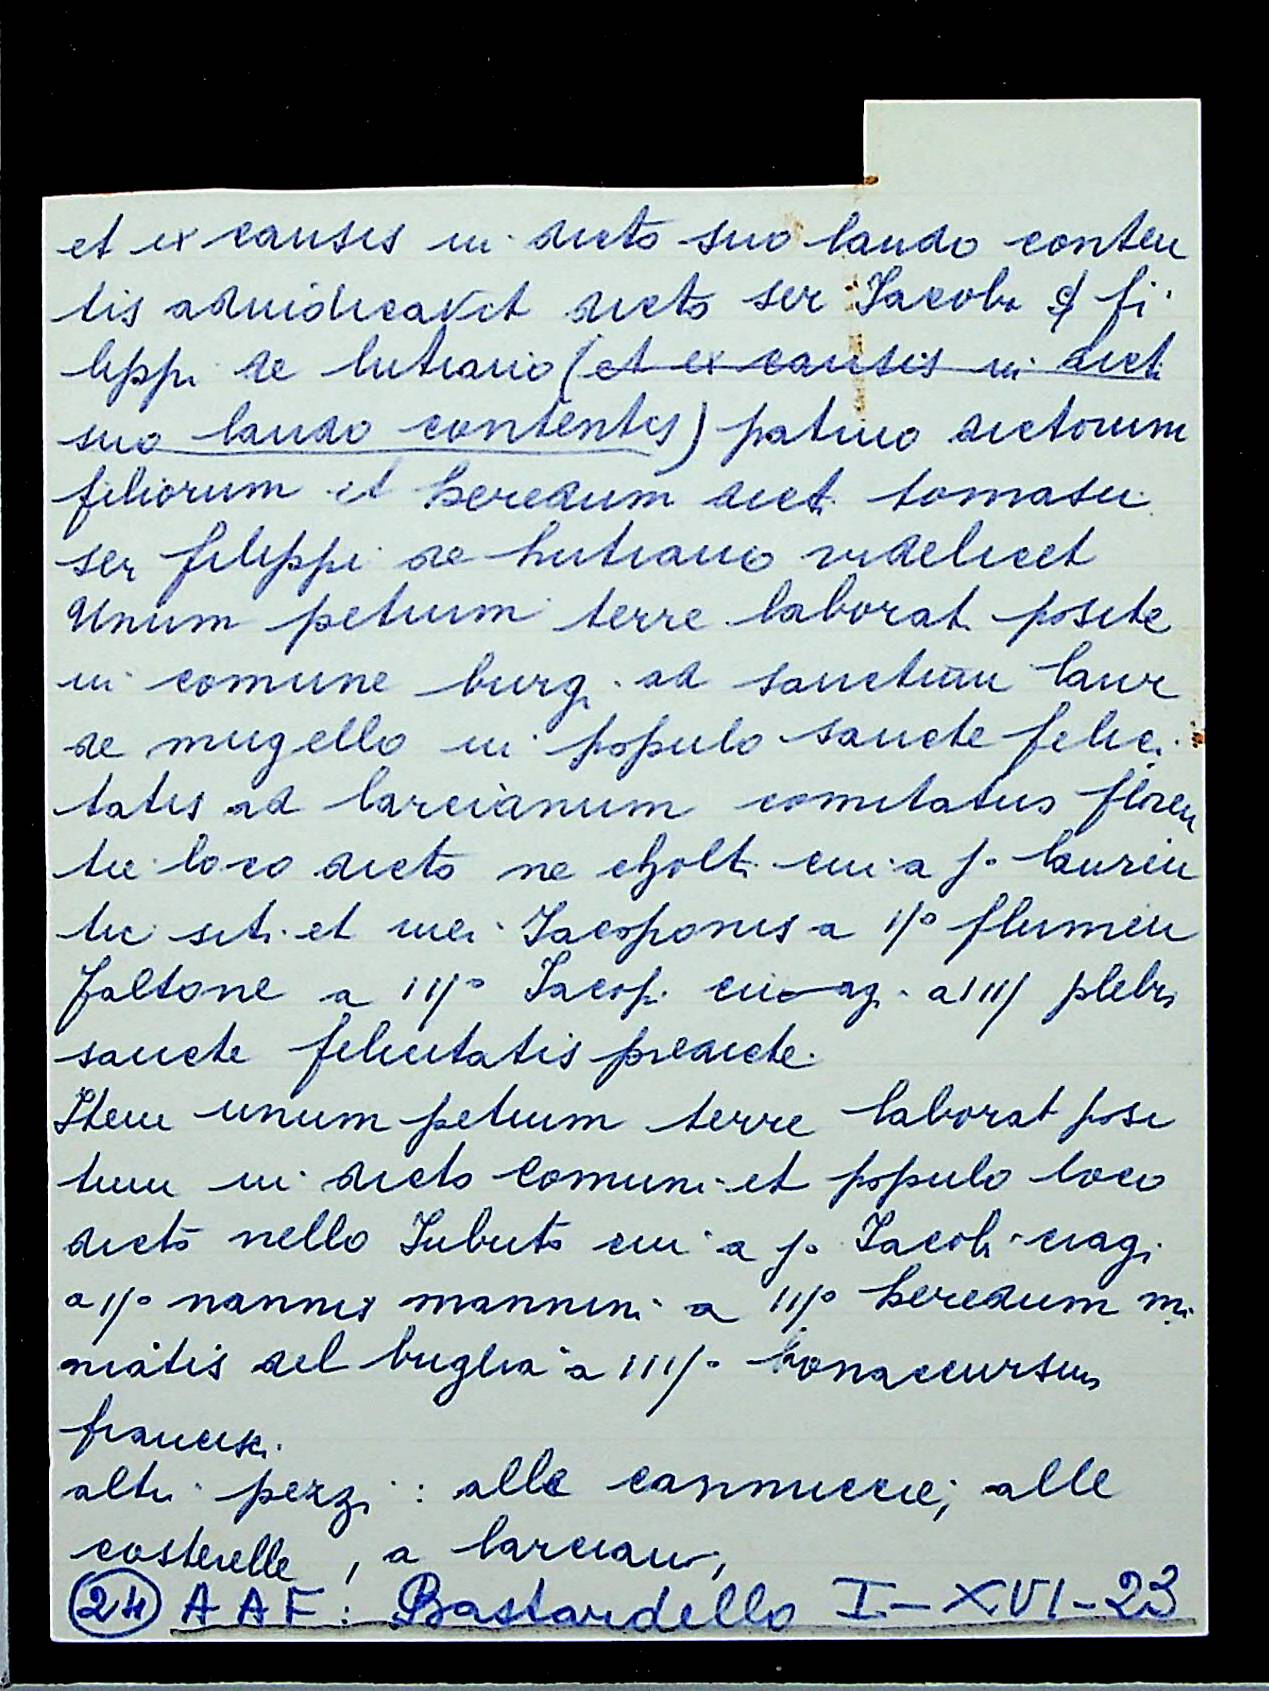 et ex causis in dicto suo laudo conten
tis adiudicavit dicto ser Iacobo & fi
lippi de lutiano (et ex causis in dict.
suo laudo contentis) patruo dictorum
filiorum et heredum dict. tomasii
ser filippi de lutiano videlicet
Unum petium terre laborat. posite
in comune burg. ad sanctum laur
de mugello in populo sancte felici
tatis ad larcianum comitatus floren
tie loco dicto ne cholti cui a j.o laurin
tii siti. et mei. Iacoponis a ij.o flumen
faltone a iij.o Iacop. a iiij plebis
sancte felicitatis predicte.
Item unum petium terre laborat posi
tum in dicto comuni et populo loco
dicto nello Iubuto cui a j.o Iacobi ciagi
a ij.o nannis mannini a iij.o heredum mi
niatis del buglia a iiij.o bonaccursus
francisc.
altri pezzi: alle cannuccie; alle
costerelle, a larciano,
24 AAF: Bastardello I-XVI-23